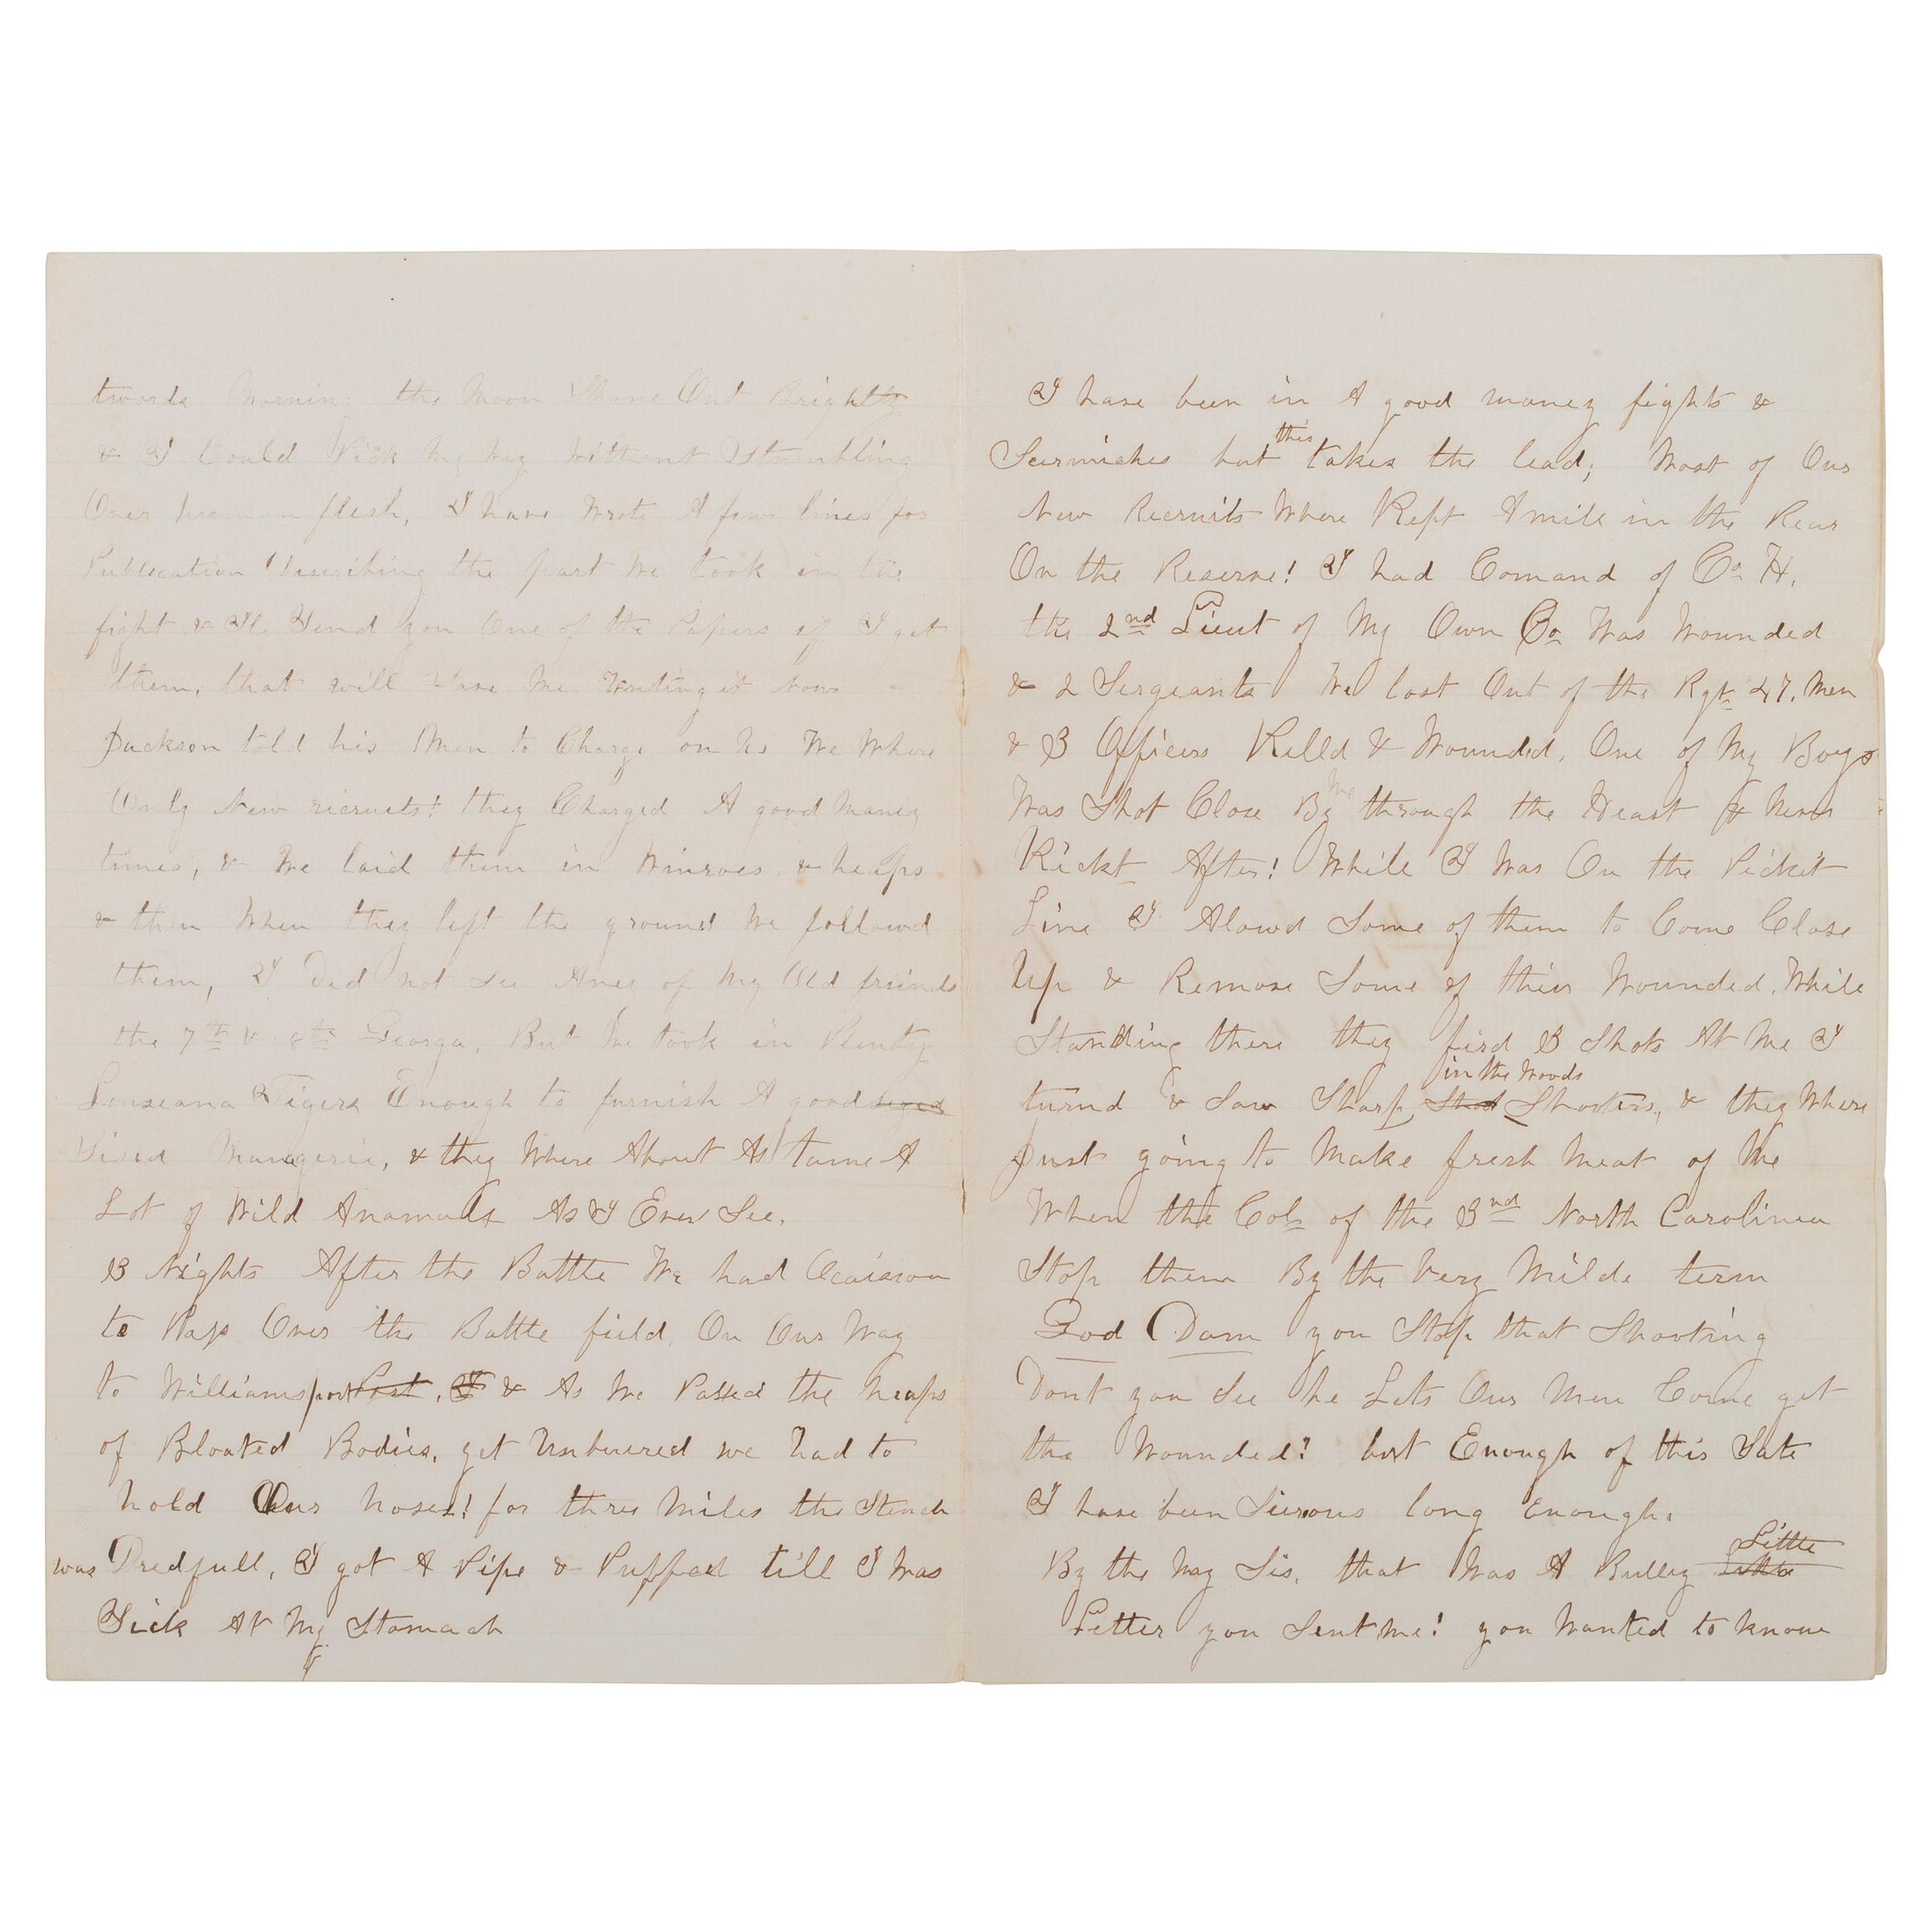 twards Morning the Moon Shone Out Brightly
& I Could Pick My Way Without Stumbling
Over human flesh, I have Wrote A few lines for
Publication Discribing the part We took in the
fight & Ile Send you One of the Papers if I get
them, that will Save Me Writing it Now
Jackson told his Men to Charge on Us We Where
Only New ricruits! they Charged A good Maney
times, & We laid them in Winroes & heaps
& then When they left the ground We followd
them, I Did Not See Aney of My Old friends
the 7th & 8th Georga, But We took in Plenty
Louseana Tigers Enough to furnish A good sized
Sised Managerie, & they Where About As tame A
Lot of Wild Anamals As I Ever See.
3 Nights After the Battle We had Ocaison
to Pass Over the Battle field, On Our Way
to Williamsport Port, I & As We Passed the heaps
of Bloated Bodies, yet Unbureed we had to
hold Our noses! for three Miles the Stench
was Dredfull, I got A Pipe & Puffed till I Was
Sick At My Stomach
I have been in A good maney fights &
Scirmiches but this takes the lead; Most of Our
New Recruits Where Kept A mile in the Rear
On the Reserve! I had Comand of Co H,
the 2nd Lieut of My Own Co Was Wounded
& 2 Sergeants We lost Out of the Rgt 47. Men
& 3 Officers Killd & Wounded. One of My Boys
Was Shot Close By me through the Heart & Never
Kickt After! While I Was On the Picket
Line I Alowd Some of them to Come Close
Up & Remove Some of their Wounded. While
Standing there they fird 3 Shots At Me I
turnd & Saw Sharp Shot in the Woods Shooters, & they Where
Just going to Make fresh Meat of Me
When the Col of the 3nd North Carolinea
Stop them By the Very Milde term
God Dam you Stop that Shooting
Dont you See he Lets Our Men Come get
the Wounded? but Enough of this Sate
I have been Sierous long Enough.
By the Way Sis, that Was A Bulley Little
Letter you Sent me! you Wanted to know